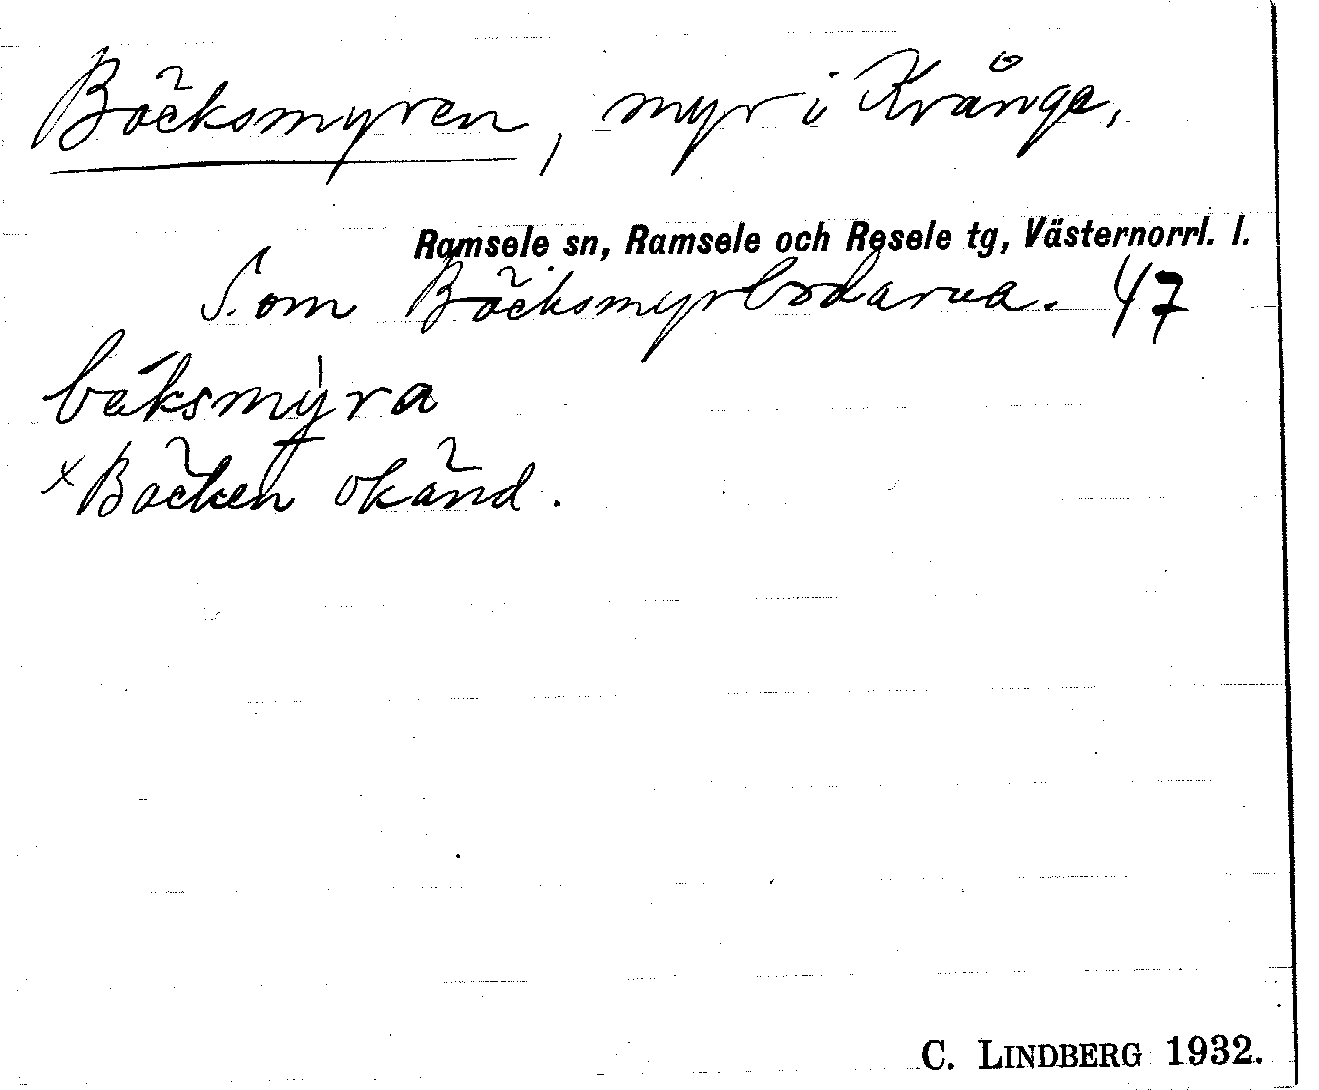 Bäcksmyren, myr i Krånge,
Ramsele sn, Ramsele och Resele tg, Västernorrl. l.
S. om Bäcksmyrbodarna. 47
bäksmỳra
x Bäcken okänd.
C. LINDBERG 1932.